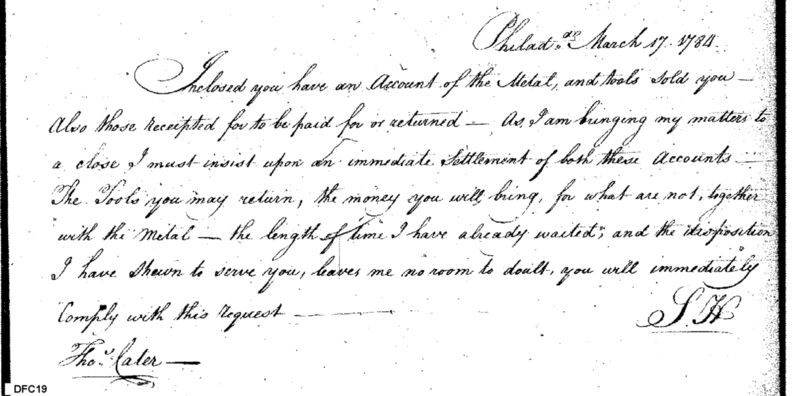 Philad.ᵃ March 17. 1784.
Inclosed you have an Account of the Metal, and tools sold you —
Also those receipted for to be paid for or returned — As, I am bringing my matters to
a close I must insist upon an immediate Settlement of both these Accounts —
The Tools you may return, the money you will bring, for what are not, together
with the Metal — the length of time I have already waited, and the disposition
I have shewn to serve you, leaves me no room to doubt, you will immediately
Comply with this request —
S. H
Thoˢ. Cater —
DFC19